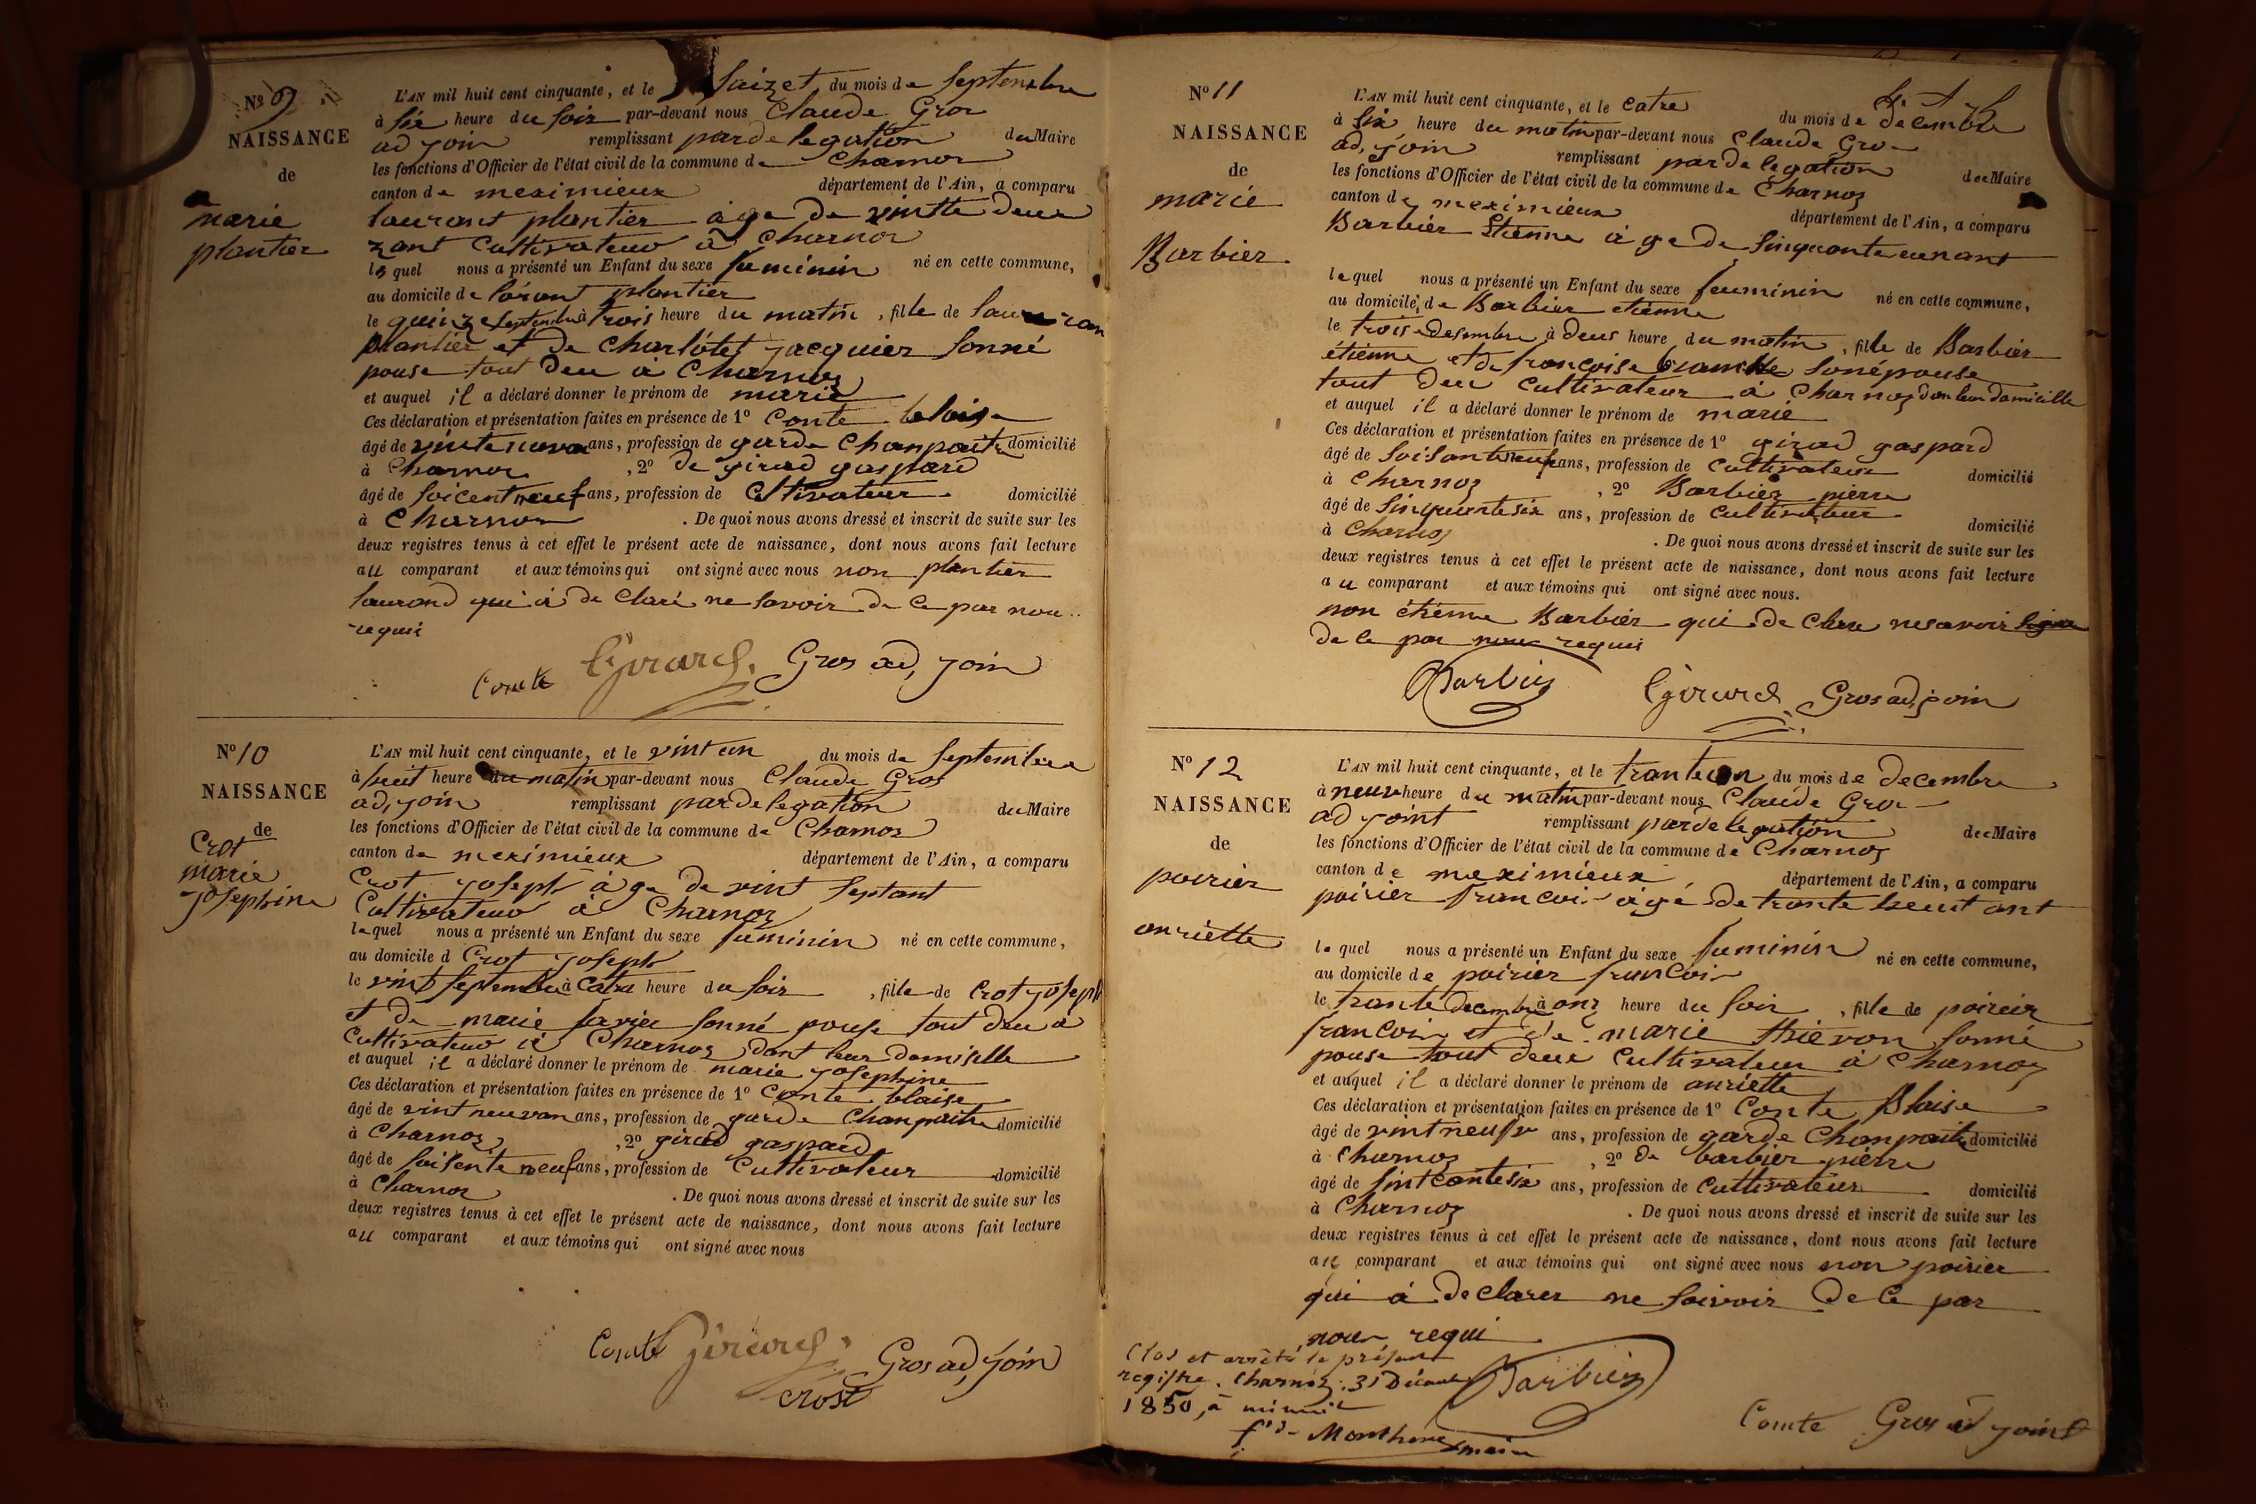 Nº 9
NAISSANCE
de
marie
plantier
L'AN mil huit cent cinquante, et le Saizet du mois de Septembre
à six heure du soir par-devant nous Claude Gros
adjoin remplissant par delegation du Maire
les fonctions d'Officier de l'état civil de la commune de Charnoz
canton de meximieux département de l'Ain, a comparu
laurant plantier àge de vintte deux
zant Cultivateur à Charnoz
lequel nous a présenté un Enfant du sexe feminin né en cette commune,
au domicile de lorant plantier
le quinze Septembre à trois heure du matin, fille de
plantier et de Charlotet jacquier sonné
pouse tout deu à Charnoz
et auquel il a déclaré donner le prénom de marie
Ces déclaration et présentation faites en présence de 1º Conte
âgé de ans, profession de garde Chanpaitre domicilié
à Charnoz, 2º de girad gaspard
âgé de soicent neuf ans, profession de Cltivateur domicilié
à Charnoz. De quoi nous avons dressé et inscrit de suite sur les
deux registres tenus à cet effet le présent acte de naissance, dont nous avons fait lecture
au comparant et aux témoins qui ont signé avec nous non plantier
laurand qui à de claré ne savoir de ce par nou
requis
Comte Girard. Gros ad, join
Nº 10
NAISSANCE
de
Crot
marie
josephine
L'AN mil huit cent cinquante, et le vint un du mois de Septembre
à huit heure du matin par-devant nous Claude Gros
ad, join remplissant par delegation du Maire
les fonctions d'Officier de l'état civil de la commune de Charnoz
canton de meximieux département de l'Ain, a comparu
Crot joseph àge de vint septant
Cultivateur à Charnoz
lequel nous a présenté un Enfant du sexe feminin né en cette commune,
au domicile d Crot joseph
le vint septembre à Catre heure du soir, fille de Crot joseph
et de marie sonné pouse tout deu à
Cultivateur à Charnoz dont leur domiselle
et auquel il a déclaré donner le prénom de marie josephine
Ces déclaration et présentation faites en présence de 1º Conte blaise
âgé de vint neuvan ans, profession de garde Chanpaitre domicilié
à Charnoz, 2º girad gaspard
âgé de soisente neuf ans, profession de Cultivateur domicilié
à Charnoz. De quoi nous avons dressé et inscrit de suite sur les
deux registres tenus à cet effet le présent acte de naissance, dont nous avons fait lecture
au comparant et aux témoins qui ont signé avec nous
Comte Girard Gros ad, join
crost
Nº 11
NAISSANCE
de
marie
Barbier
L'AN mil huit cent cinquante, et le Catre du mois de decembre
à six heure du matin par-devant nous Claude Gros
ad, join remplissant par delegation du Maire
les fonctions d'Officier de l'état civil de la commune de Charnoz
canton de meximieux département de l'Ain, a comparu
Barbier Etienne àge de sinquante eunant
lequel nous a présenté un Enfant du sexe feuminin né en cette commune,
au domicile de Barbier etienne
le trois desembre à deus heure du matin, fille de Barbier
étienne et de francoise sonépouse
tout deu cultivateur à Charnoz don leur domicille
et auquel il a déclaré donner le prénom de marie
Ces déclaration et présentation faites en présence de 1º girad gaspard
âgé de soisante neuf ans, profession de Cultivateur domicilié
à Charnoz, 2º Barbier pierre
âgé de sinquentesix ans, profession de Cultivateur domicilié
à Charnoz. De quoi nous avons dressé et inscrit de suite sur les
deux registres tenus à cet effet le présent acte de naissance, dont nous avons fait lecture
au comparant et aux témoins qui ont signé avec nous.
non étienne Barbier qui de clare nesavoir signer
de ce par nous requis
Barbier Girard Gros ad, join
Nº 12
NAISSANCE
de
poirier
anriette
L'AN mil huit cent cinquante, et le tranteun du mois de decembre
à neuv heure du matin par-devant nous Claude Gros
ad joint remplissant par delegation du Maire
les fonctions d'Officier de l'état civil de la commune de Charnoz
canton de meximieux département de l'Ain, a comparu
poirier francois àgé de trante heuit ant
lequel nous a présenté un Enfant du sexe feminin né en cette commune,
au domicile de poirier francois
le trante decembre à onz heure du soir, fille de poirier
francois et de marie thievon sonné
pouse tout deux Cultivateur à Charnoz
et auquel il a déclaré donner le prénom de anriette
Ces déclaration et présentation faites en présence de 1º Conte Blaise
âgé de vint neufv ans, profession de garde Chanpaitre domicilié
à Charnoz, 2º de barbier pierre
âgé de sintcantesix ans, profession de Cultivateur domicilié
à Charnoz. De quoi nous avons dressé et inscrit de suite sur les
deux registres tenus à cet effet le présent acte de naissance, dont nous avons fait lecture
au comparant et aux témoins qui ont signé avec nous non poirier
qui à declarer ne soivoir de ce par
nous requi
Clos et arrêté le présent
registre. Charnoz, 31 Décembre
1850, à minuit
Barbier
Comte Gros ad joint
maire